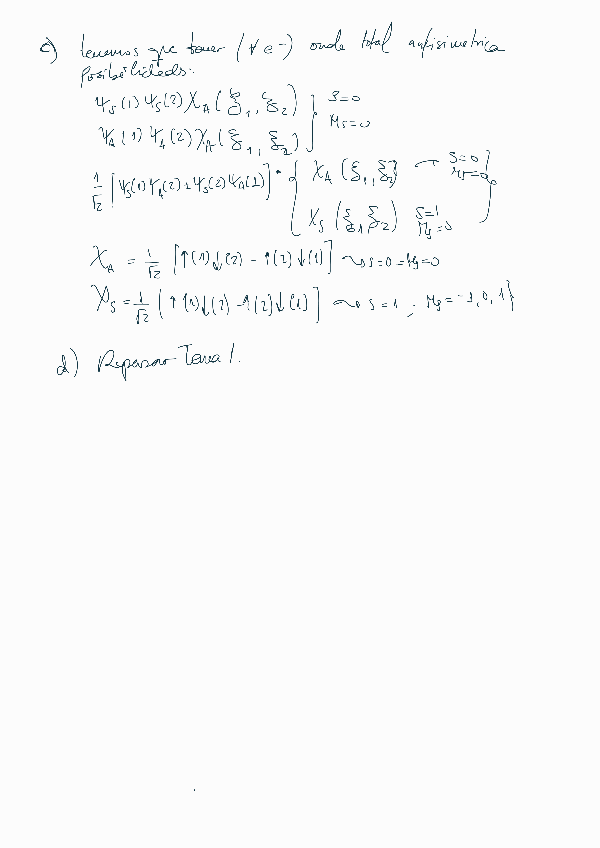 c) Tenemos que tener (∀ e⁻) onda total antisimetrica
Posibilidades:
Ψs(1) Ψs(2) χA(ξ1, ξ2) } S=0
ΨA(1) ΨA(2) χA(ξ1, ξ2) } Ms=0
1/√2 [Ψs(1)ΨA(2) ± Ψs(2)ΨA(1)] · { χA(ξ1, ξ2) → S=0
χs(ξ1, ξ2) S=1 Ms=0 }
χA = 1/√2 [↑(1)↓(2) - ↑(2)↓(1)] ⟿ S=0=Ms=0
χs = 1/√2 [↑(1)↓(2) - ↑(2)↓(1)] ⟿ S=1 ; Ms=-1,0,1}
d) Repasar Tema 1.